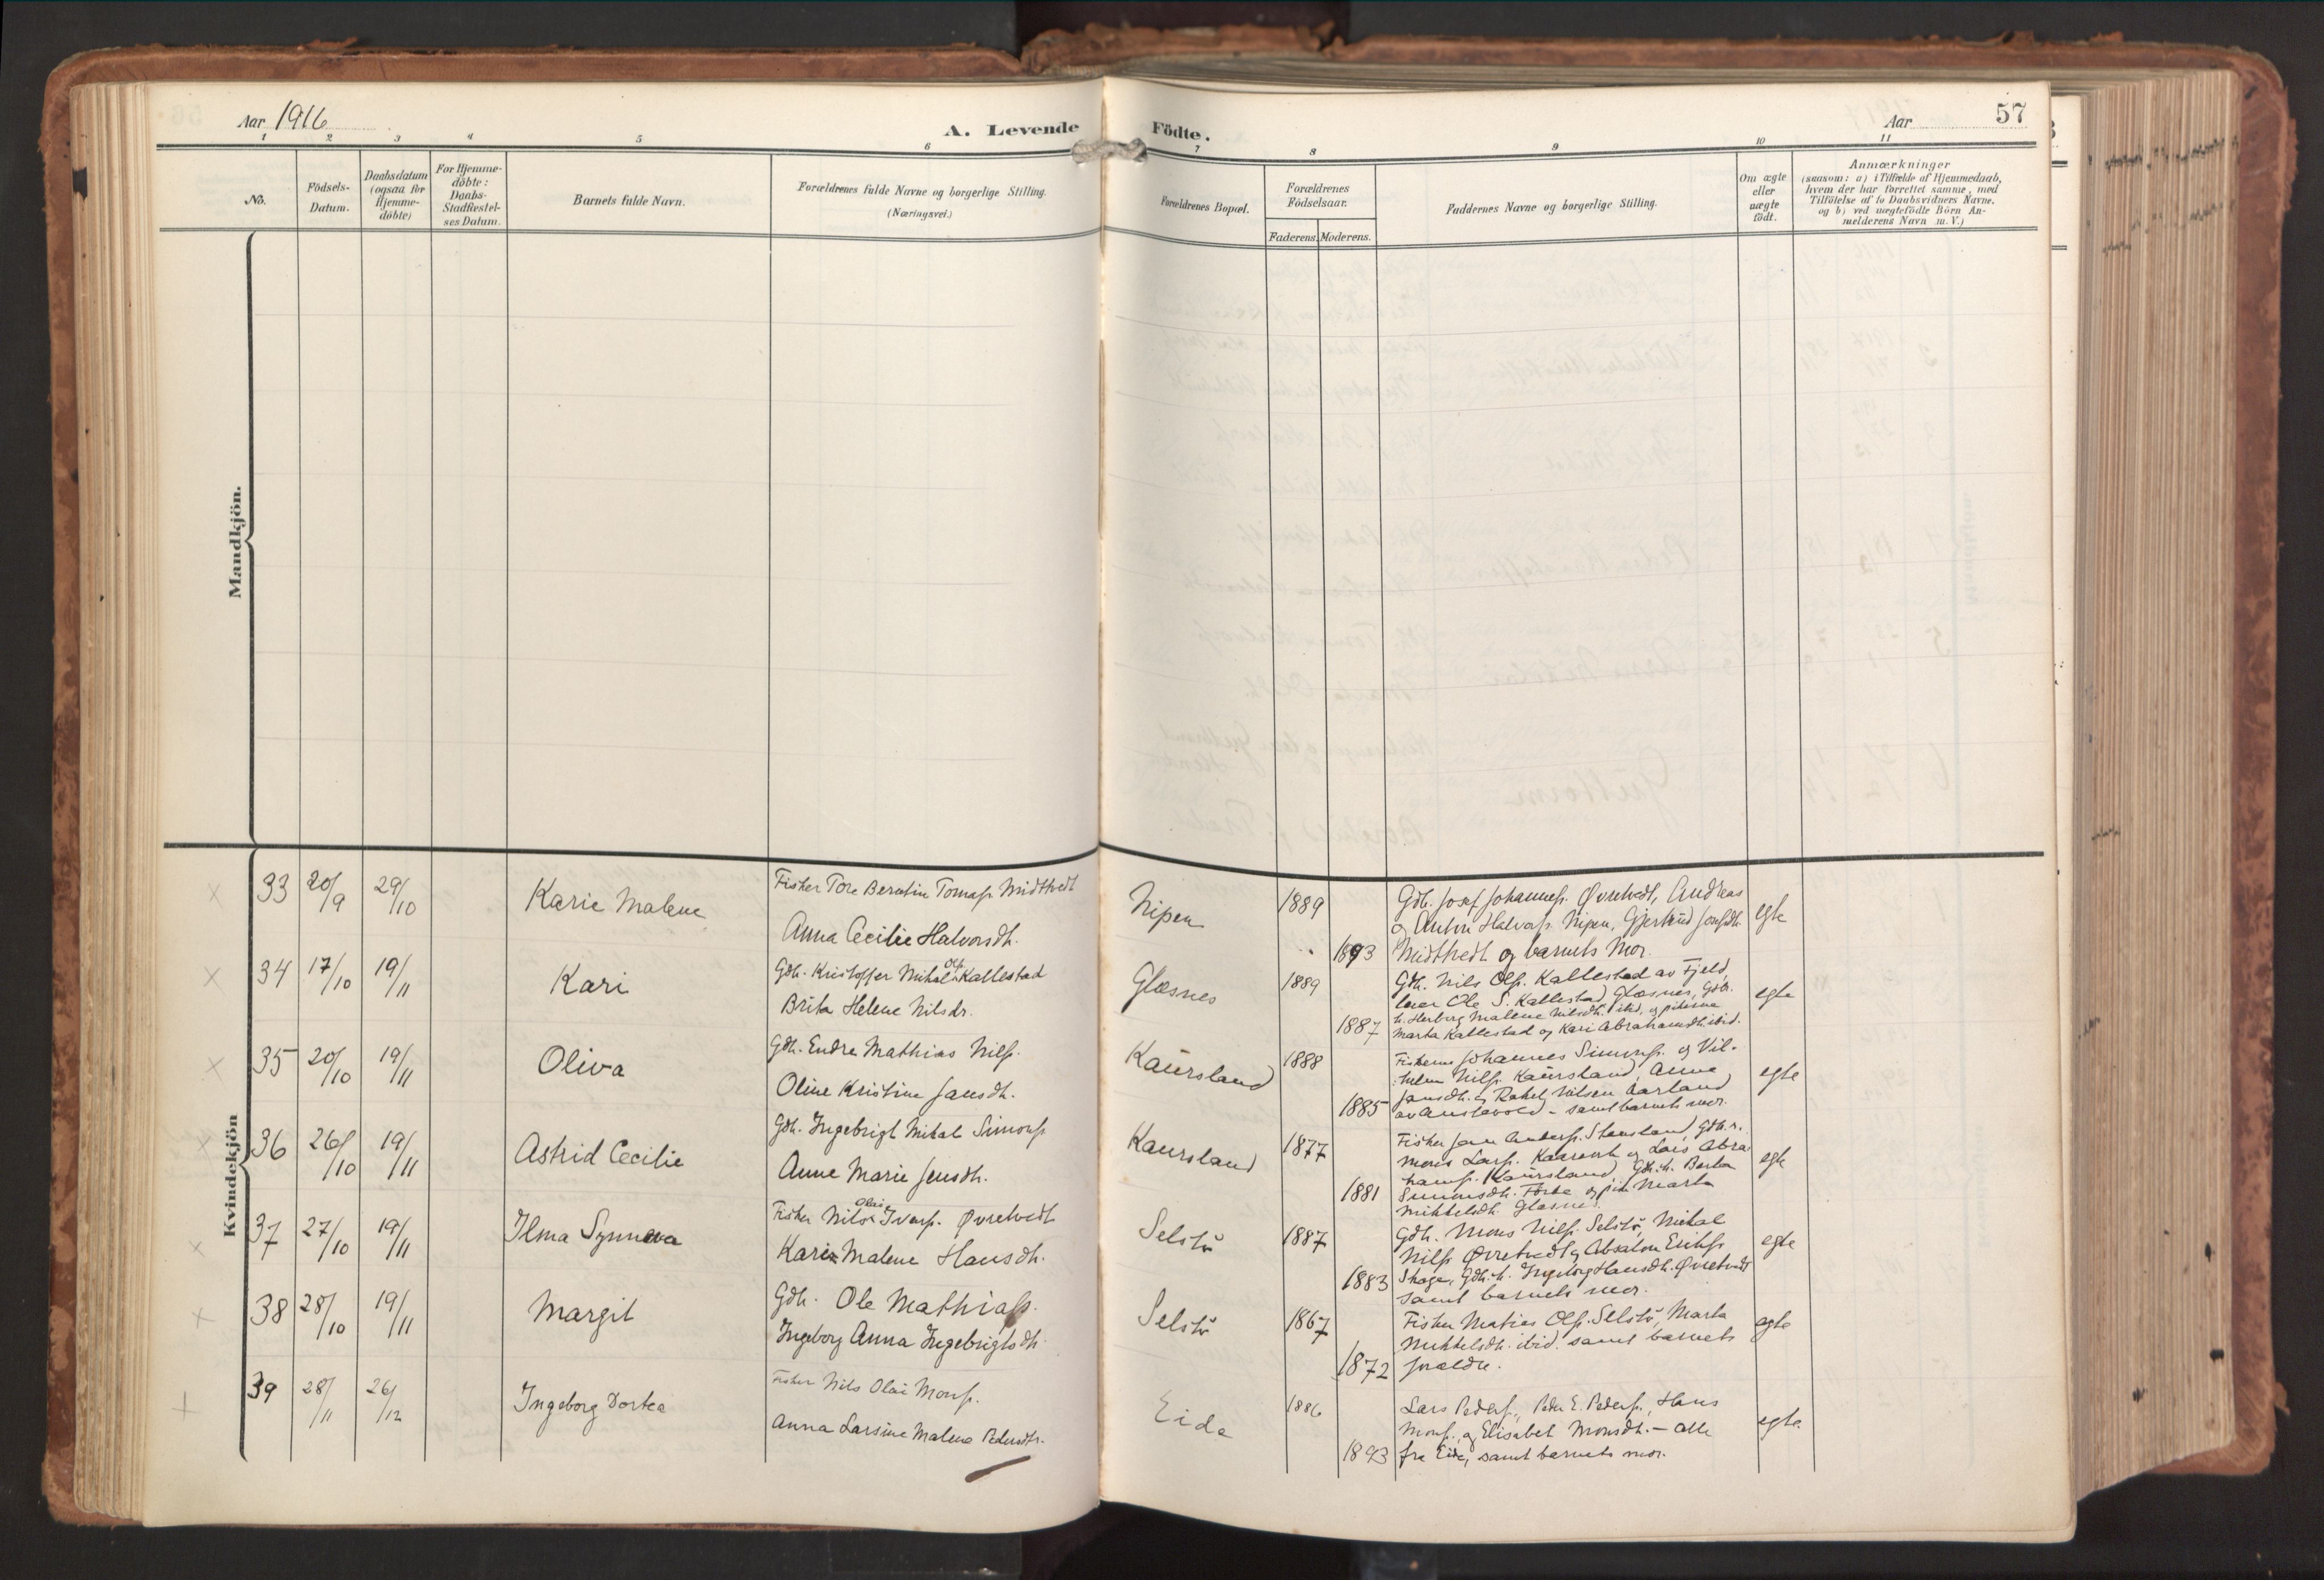 Aar 1916
A. Levende Födte.
Aar
57
1 2 3 4 5 6 7 8 9 10 11
No.
Födsels-
Datum.
Daabsdatum
(ogsaa for
Hjemme-
döbte)
For Hjemme-
döbte:
Daabs-
Stadfæstel-
ses Datum.
Barnets fulde Navn.
Forældrenes fulde Navne og borgerlige Stilling.
(Næringsvei.)
Forældrenes Bopæl.
Forældrenes
Födselsaar.
Faderens. Moderens.
Faddernes Navne og borgerlige Stilling.
Om ægte
eller
uægte
födt.
Anmærkninger
(saasom: a) i Tilfælde af Hjemmedaab,
hvem der har forrettet samme, med
Tilföielse af to Daabsvidners Navne.
og b) ved uægtefödte Börn An-
melderens Navn m. V.)
Mandkjön.
Kvindekjön
33 20/9 29/10 Karie Malene
Fisker Tore Berntin Tomass. Midttvedt
Anna Cecilie Halvorsdh.
Nipen 1889
1893
Gdh. Josef Johanness. Øvretvedt, Andreas
og Anton Halvors. Nipen, Gjertrud Jonsdh.
Midttvedt og barnets mor.
egte
34 17/10 19/11 Kari
Gdh. Kristoffer Mikal Ols. Kallestad
Brita Helene Nilsdr.
Glæsnes 1889
1887
Gdh. Nils Ols. Kallestad av Fjeld,
Ole S. Kallestad, Glæsnes, Gdb.
h. Herborg Malene Nilsdh. ibid, og pikerne
Marta Kallestad og Kari Abrahamsdh. ibid.
egte
35 20/10 19/11 Oliva
Gdh. Endre Mathias Nils.
Oline Kristine Jansdh.
Kaursland 1888
1885
Fiskerne Johannes Simons. og Vil-
helm Nils. Kaursland, Anne
Jansdh. og Rakel Nilsen Aarland
av Austevold - samt barnets mor.
egte
36 26/10 19/11 Astrid Cecilie
Gdh. Ingebrigt Mikal Simons.
Anne Marie Jensdh.
Kaursland 1877
1881
Fisker Jan Anders. Stensland, Gdb.
Mons Lars. og Lars Abra
hams. Kaursland, Gdh. h. Berta
Simonsdh. og pike Marta
Mikkelsdh. Glæsnes.
egte
37 27/10 19/11 Ilma Synneva
Fisker Nils Olai Ivers. Øvretvedt
Karie Malene Hansdh.
Selstø 1887
1883
Gdh. Mons Nils. Selstø, Mikal
Nils. Øvretvedt og Absalon Eriks.
Skage, Gdh. h. Ingeborg Hansdh. Øvretvedt
samt barnets mor.
egte
38 28/10 19/11 Margit
Gdh. Ole Mathiass.
Ingeborg Anna Ingebrigtsdh.
Selstø 1867
1872
Fisker Matias Ols. Selstø, Marta
Mikkelsdh. ibid. samt barnets
forældre.
egte
39 28/11 26/12 Ingeborg Dortea
Fisker Nils Olai Mons.
Anna Larsine Malene Pedersdtr.
Eide 1886
1893
Lars Peders., Peder E. Peders., Hans
Mons. og Elisabet Monsdh. - alle
fra Eide, samt barnets mor.
egte.